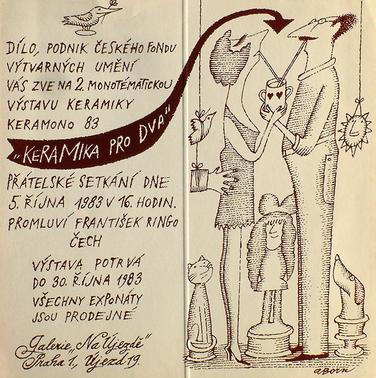 DÍLO, PODNIK ČESKÉHO FONDU
VÝTVARNÝCH UMĚNÍ
VÁS ZVE NA 2. MONOTÉMATICKOU
VÝSTAVU KERAMIKY
KERAMONO 83
„KERAMIKA PRO DVA“
PŘÁTELSKÉ SETKÁNÍ DNE
5. ŘÍJNA 1983 V 16. HODIN.
PROMLUVÍ FRANTIŠEK RINGO
ČECH
VÝSTAVA POTRVÁ
DO 30. ŘÍJNA 1983
VŠECHNY EXPONÁTY
JSOU PRODEJNÉ
Galerie „Na Újezdě“
Praha 1., Újezd 19.
ABORN